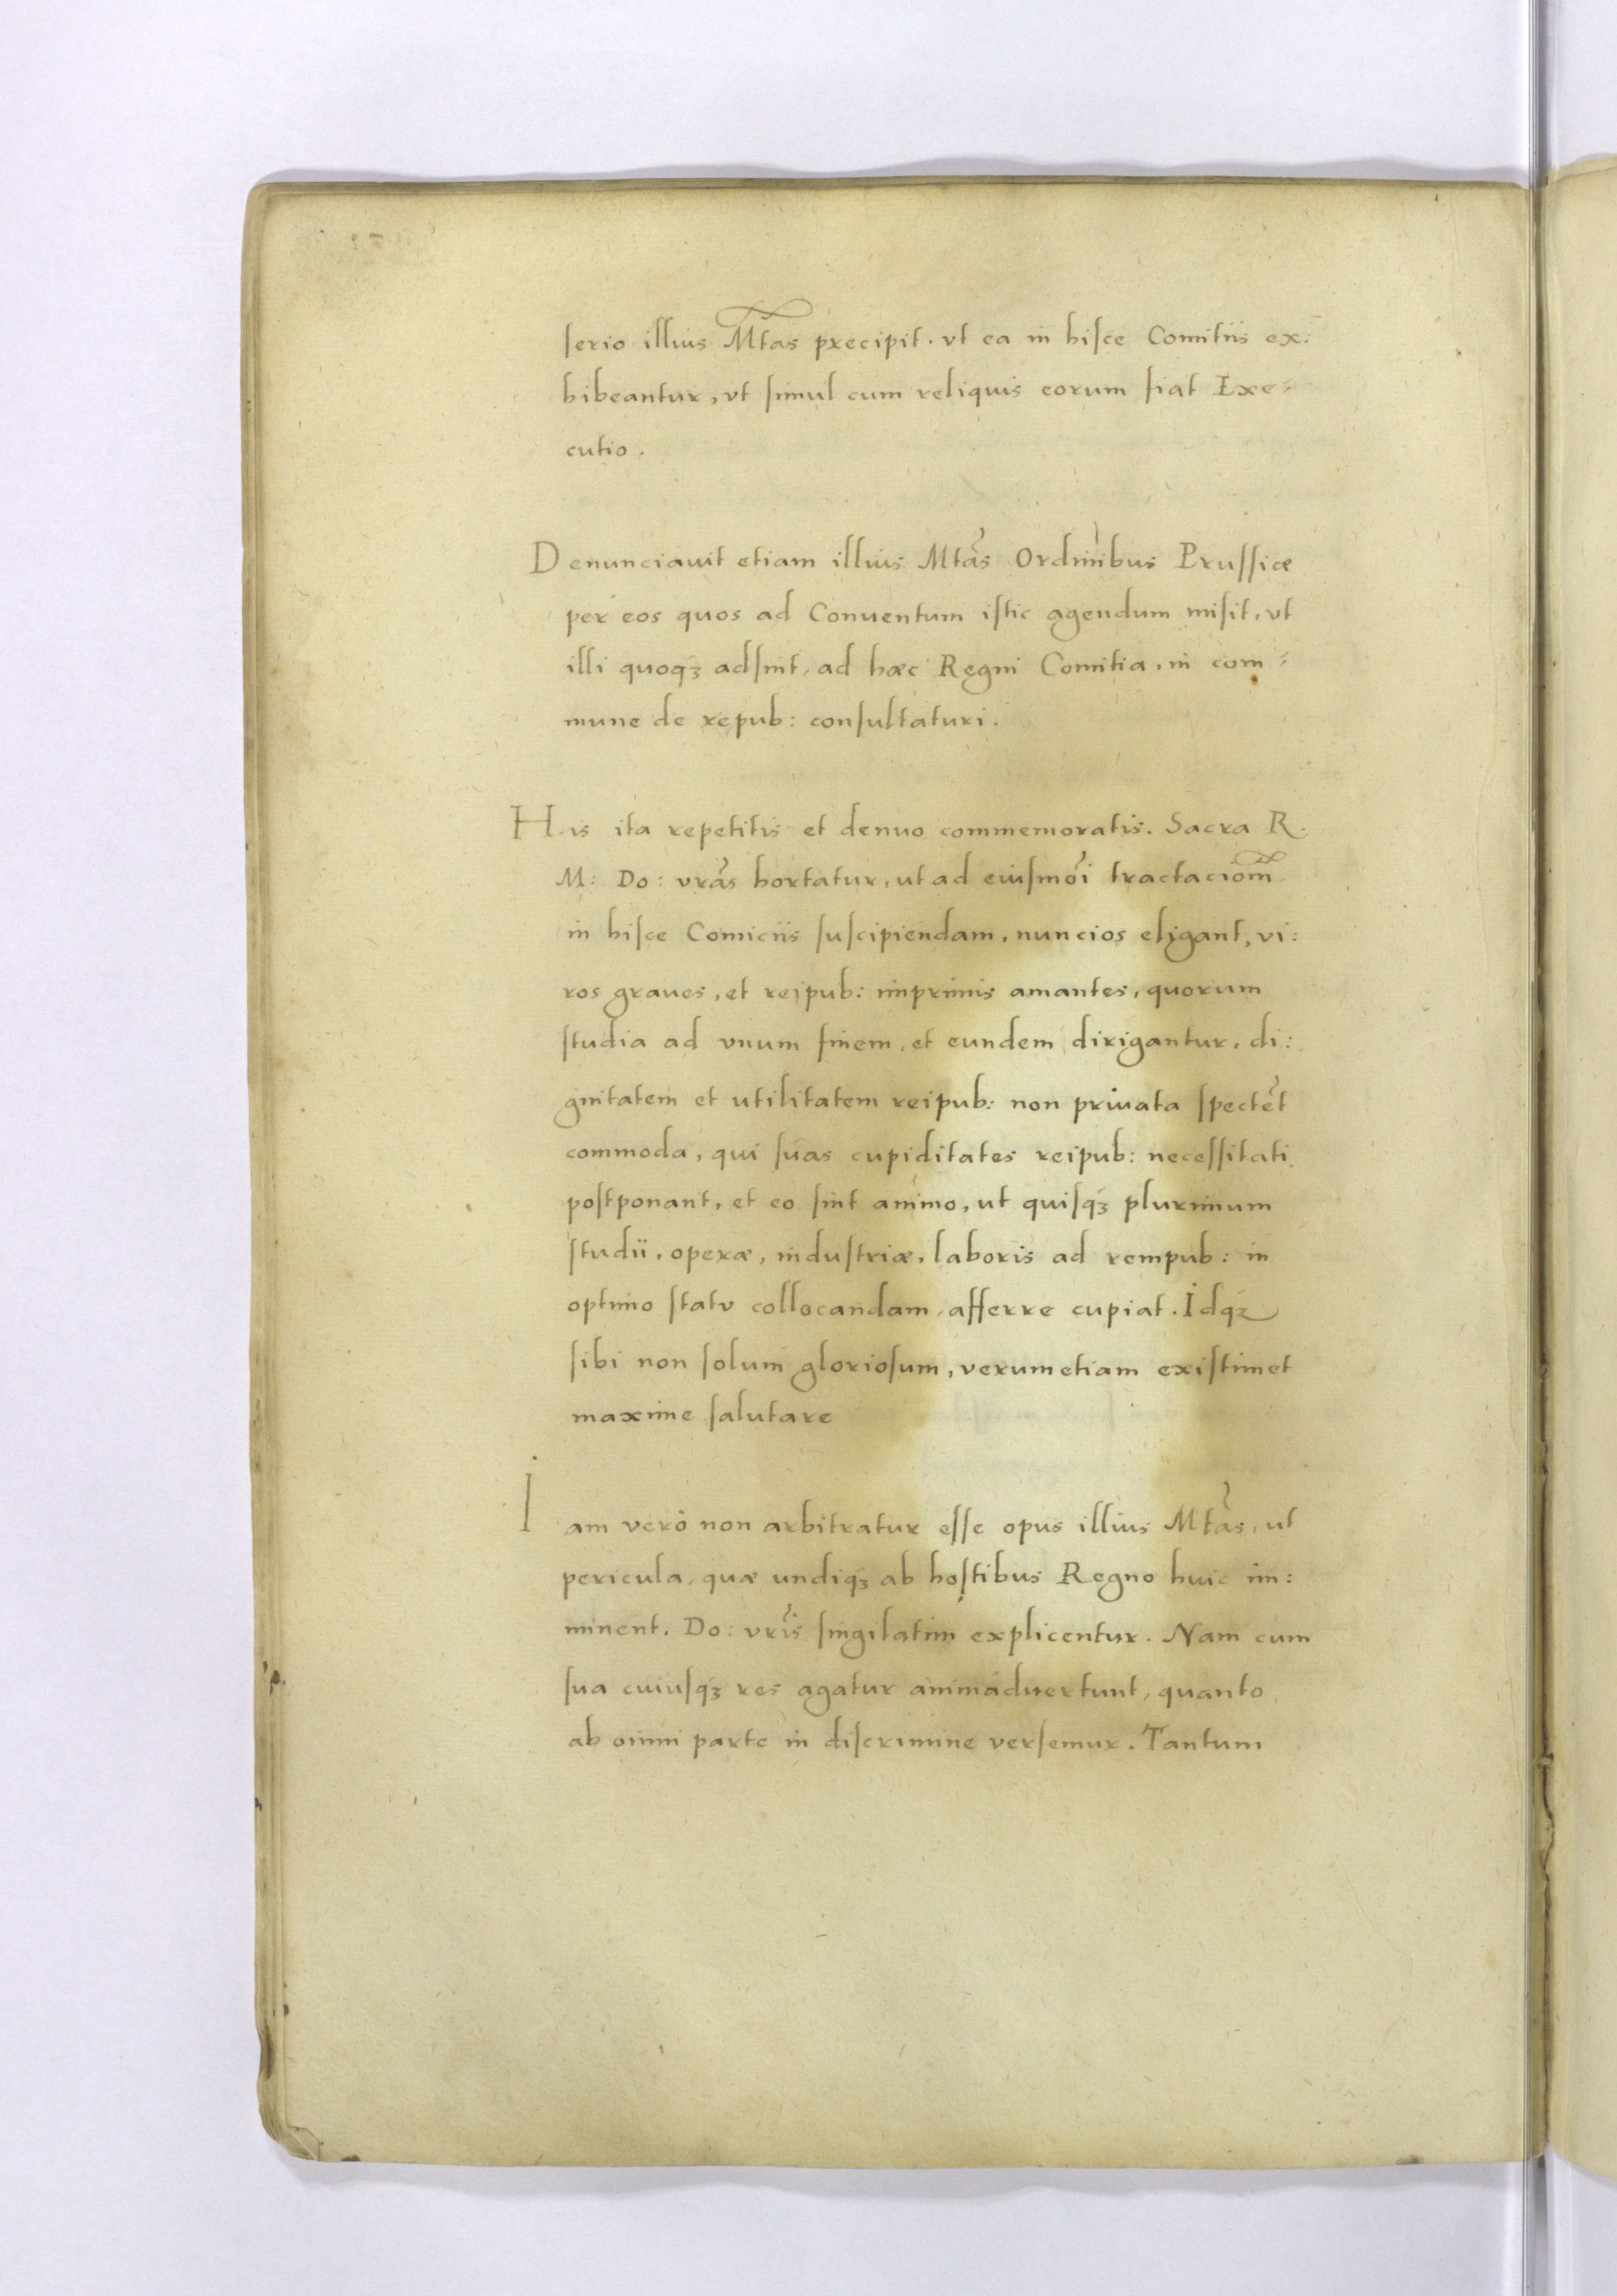 ſerio illius Mtas precipit. vt ea in hiſce Comitiis ex:
hibeantur, vt ſimul cum reliquis eorum fiat Exe:
cutio.
Denunciauit etiam illius Mtas Ordinibus Pruſſiæ
per eos quos ad Conuentum iſtic agendum miſit, vt
illi quoqꝫ adſint, ad hæc Regni Comitia, in com:
mune de repub: conſultaturi.
His ita repetitis et denuo commemoratis. Sacra R.
M: Do: vrãs hortatur, ut ad eiuſmõi tractaciom̃
in hiſce Comiciis ſuſcipiendam, nuncios eligant, vi:
ros graues, et reipub: imprimis amantes, quorum
ſtudia ad vnum finem, et eundem dirigantur, di:
gnitatem et utilitatem reipub: non priuata ſpectẽt
commoda, qui ſuas cupiditates reipub: neceſſitati
poſtponant, et eo ſint animo, ut quiſqꝫ plurimum
ſtudii, operæ, induſtriæ, laboris ad rempub: in
optimo ſtatv collocandam, afferre cupiat. Idqꝫ
ſibi non ſolum glorioſum, verumetiam exiſtimet
maxime ſalutare
Iam verò non arbitratur eſſe opus illius Mtãs, ut
pericula, quæ undiqꝫ ab hoſtibus Regno huic im:
minent, Do: vrĩs ſingilatim explicentur. Nam cum
ſua cuiuſqꝫ res agatur animaduertunt, quanto
ab omni parte in diſcrimine verſemur. Tantum